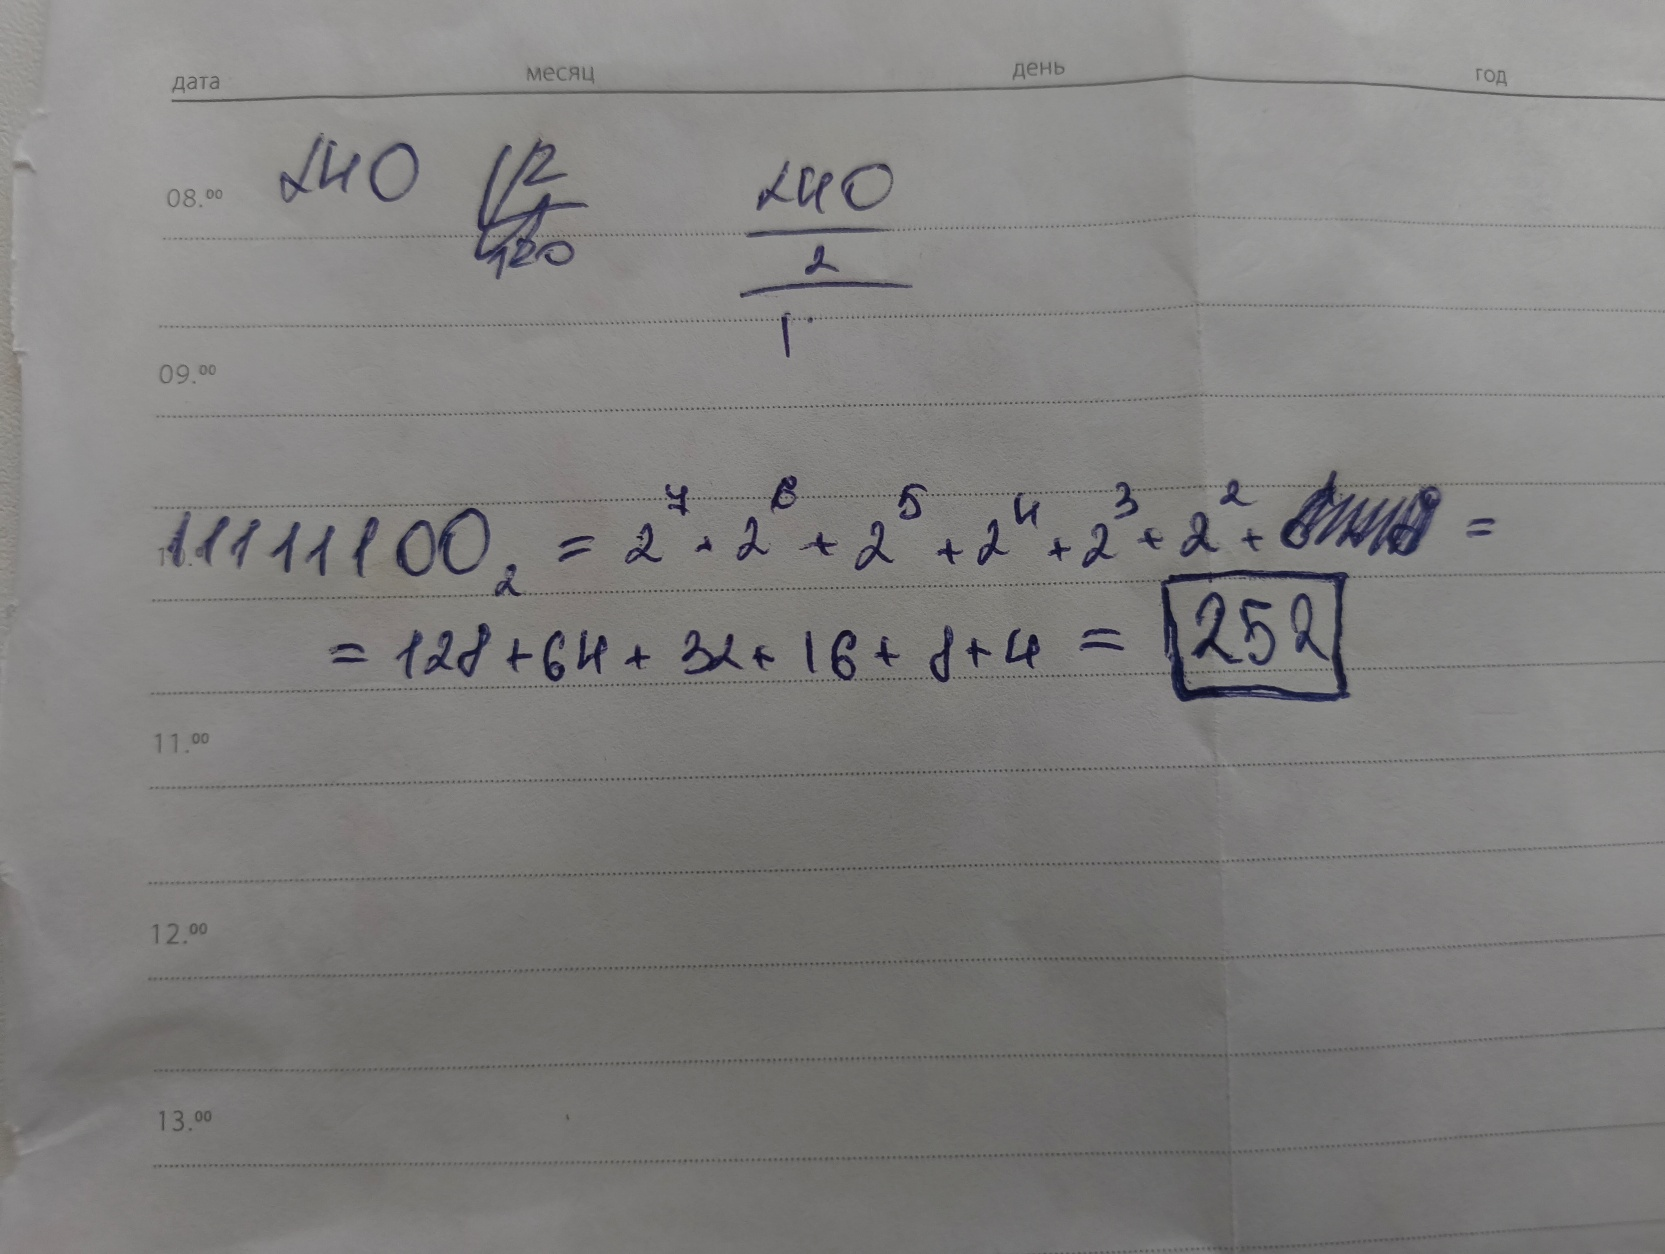 дата месяц день год
08.00 240 240
120 2
1
09.00
11111100₂ = 2⁷ + 2⁶ + 2⁵ + 2⁴ + 2³ + 2² + =
= 128 + 64 + 32 + 16 + 8 + 4 = 252
11.00
12.00
13.00